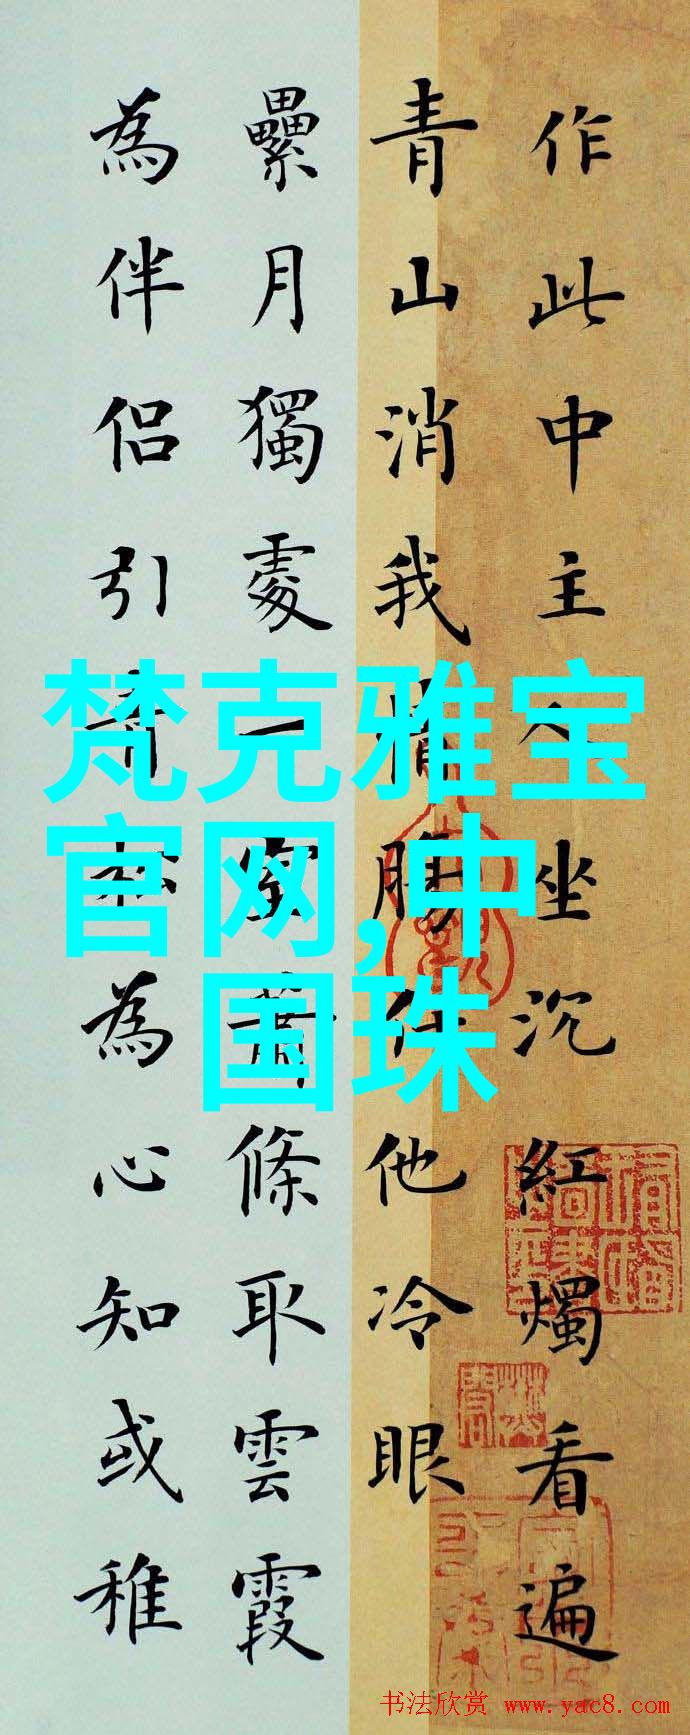 作此中主人坐沉紅燭看遍
青山消我胃腸任他冷眼
纍月獨處一室蕭條取雲霞
為伴侶引青松為心知或稚
梵克雅宝
官网,中
国珠
书法欣赏 www.yac8.com